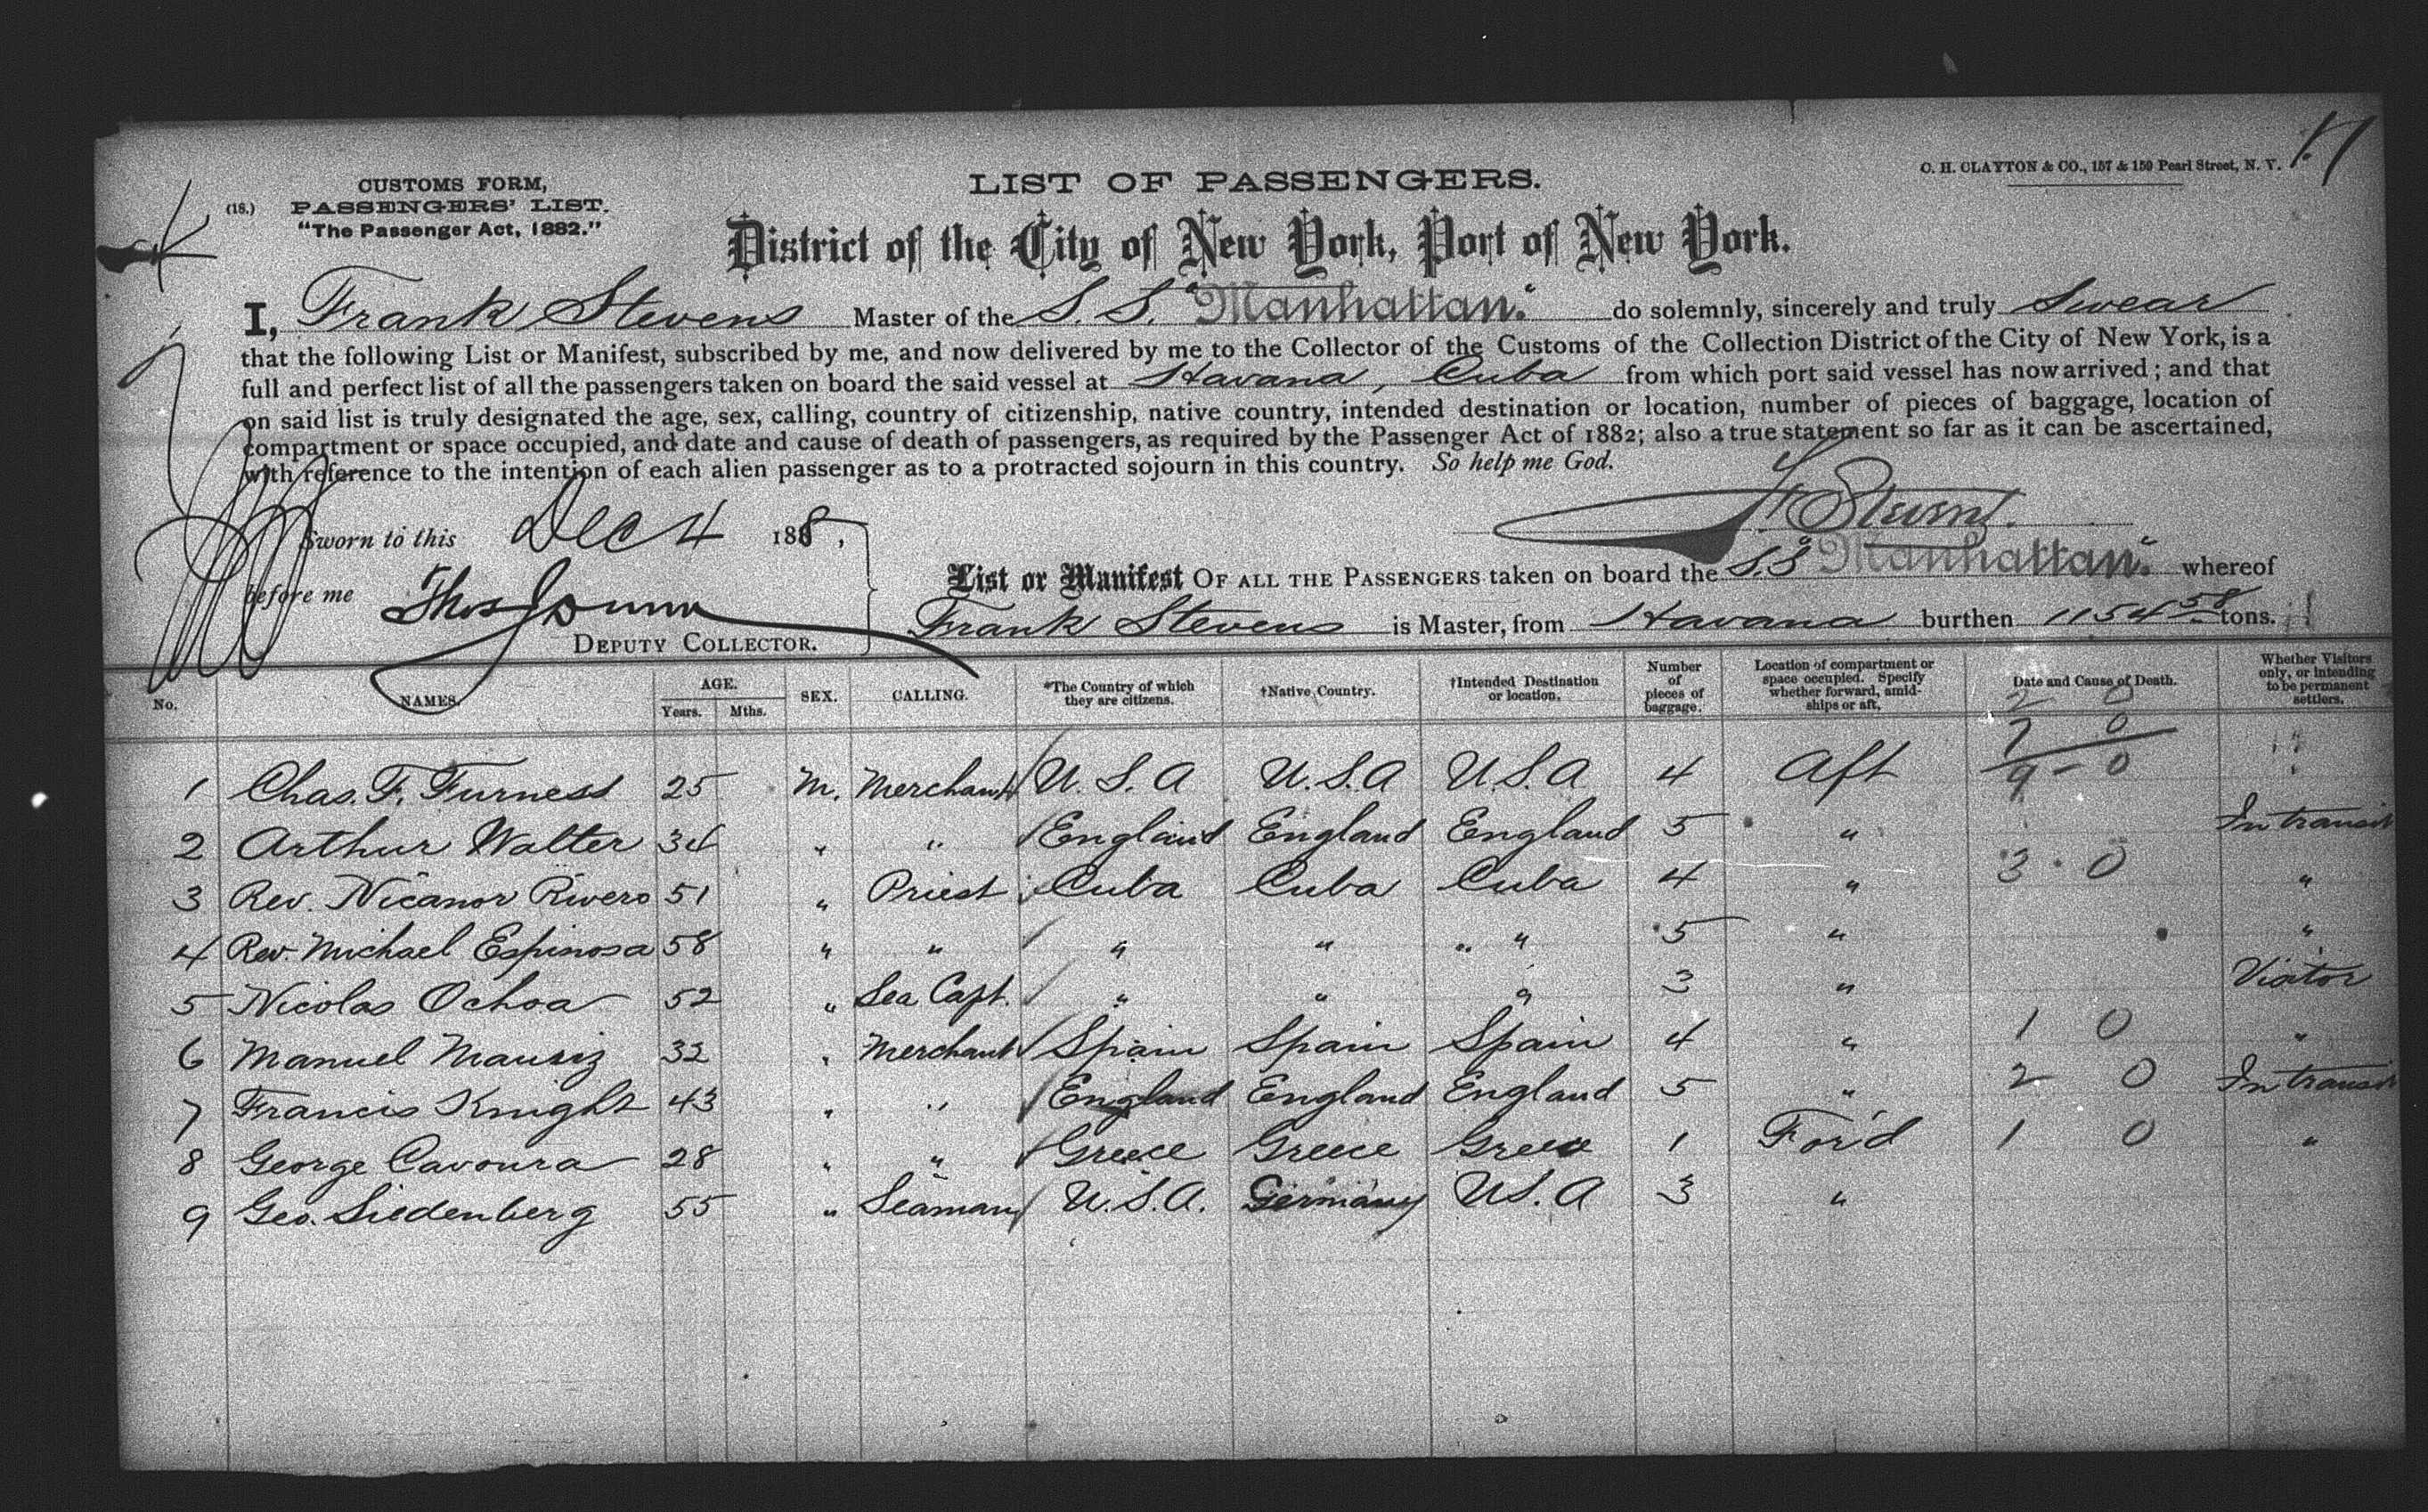 C. H. CLAYTON & CO., 157 & 159 Pearl Street, N. Y.
(18.) CUSTOMS FORM,
PASSENGERS' LIST.
"The Passenger Act, 1882."
LIST OF PASSENGERS.
District of the City of New York, Port of New York.
I, Frank Stevens Master of the S. S. "Manhattan." do solemnly, sincerely and truly Swear
that the following List or Manifest, subscribed by me, and now delivered by me to the Collector of the Customs of the Collection District of the City of New York, is a
full and perfect list of all the passengers taken on board the said vessel at Havana, Cuba from which port said vessel has now arrived; and that
on said list is truly designated the age, sex, calling, country of citizenship, native country, intended destination or location, number of pieces of baggage, location of
compartment or space occupied, and date and cause of death of passengers, as required by the Passenger Act of 1882; also a true statement so far as it can be ascertained,
with reference to the intention of each alien passenger as to a protracted sojourn in this country. So help me God.
F Stevens.
Sworn to this Dec 4 1888,
before me Thos
DEPUTY COLLECTOR.
List or Manifest OF ALL THE PASSENGERS taken on board the S.S "Manhattan." whereof
Frank Stevens is Master, from Havana burthen 1154 58 tons.
No. NAMES. AGE. Years. Mths. SEX. CALLING. *The Country of which they are citizens. †Native Country. †Intended Destination or location. Number of pieces of baggage. Location of compartment or space occupied. Specify whether forward, amidships or aft. Date and Cause of Death. Whether Visitors only, or intending to be permanent settlers.
2 0
7 0
1 Chas. F. Furness 25 M. Merchant U. S. A U.S.A U.S.A 4 Aft 9 - 0
2 Arthur Walter 34 " " England England England 5 " In transit
3 Rev. Nicanor Rivero 51 " Priest Cuba Cuba Cuba 4 " 3 0 "
4 Rev. Michael Espinosa 58 " " " " " 5 " "
5 Nicolas Ochoa 52 " Sea Capt. " " " 3 " Visitor
6 Manuel Mausiz 32 " Merchant Spain Spain Spain 4 " 1 0 "
7 Francis Knight 43 " " England England England 5 " 2 0 In transit
8 George Cavoura 28 " " Greece Greece Greece 1 For'd 1 0 "
9 Geo. Siedenberg 55 " Seaman U.S.A. Germany U.S.A 3 "